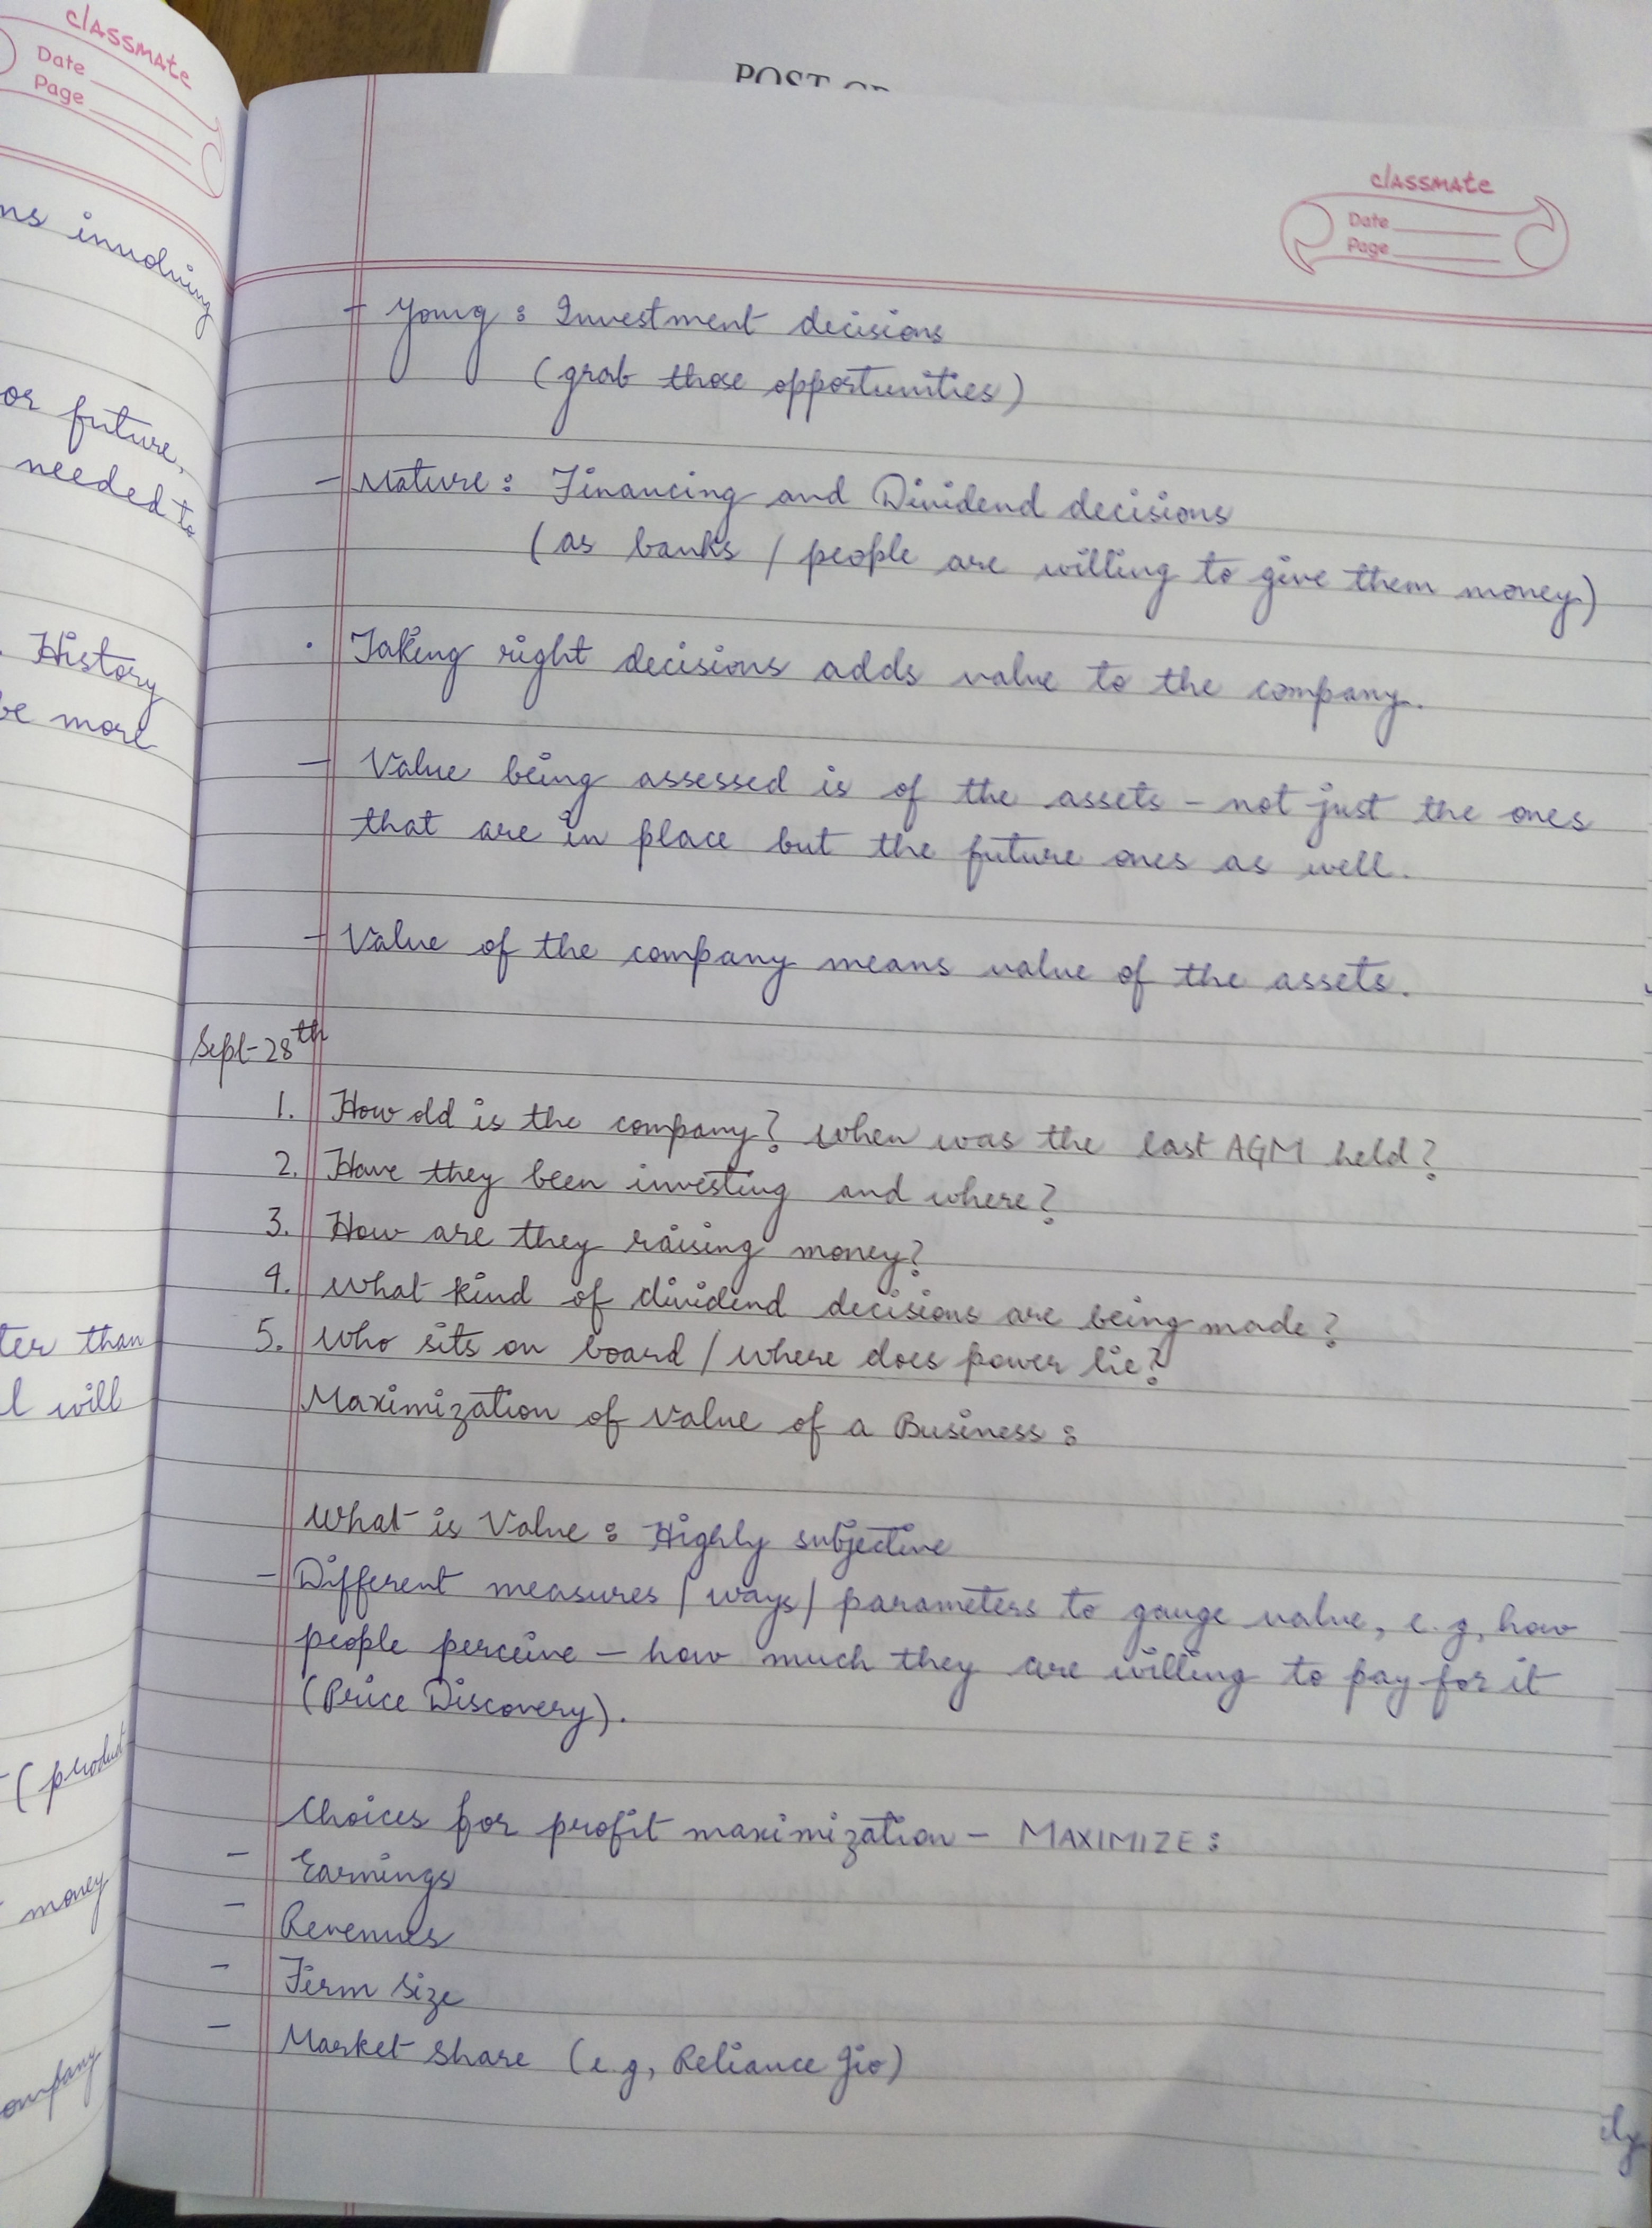 classmate
Date
Page
ns involving
or future,
needed to
History
be more
ter than
l will
(product
money
ompany
POST GR
classmate
Date
Page
- Young : Investment decisions
(grab those opportunities)
- Mature : Financing and Dividend decisions
(as banks / people are willing to give them money)
· Taking right decisions adds value to the company.
- Value being assessed is of the assets - not just the ones
that are in place but the future ones as well.
- Value of the company means value of the assets.
Sept-28th
1. How old is the company? When was the last AGM held?
2. Have they been investing and where?
3. How are they raising money?
4. What kind of dividend decisions are being made?
5. Who sits on board / where does power lie?
Maximization of value of a Business :
What is Value : Highly subjective
- Different measures / ways / parameters to gauge value, e.g, how
people perceive - how much they are willing to pay for it
(Price Discovery).
Choices for profit maximization - MAXIMIZE :
- Earnings
- Revenues
- Firm Size
- Market Share (e.g, Reliance Jio)